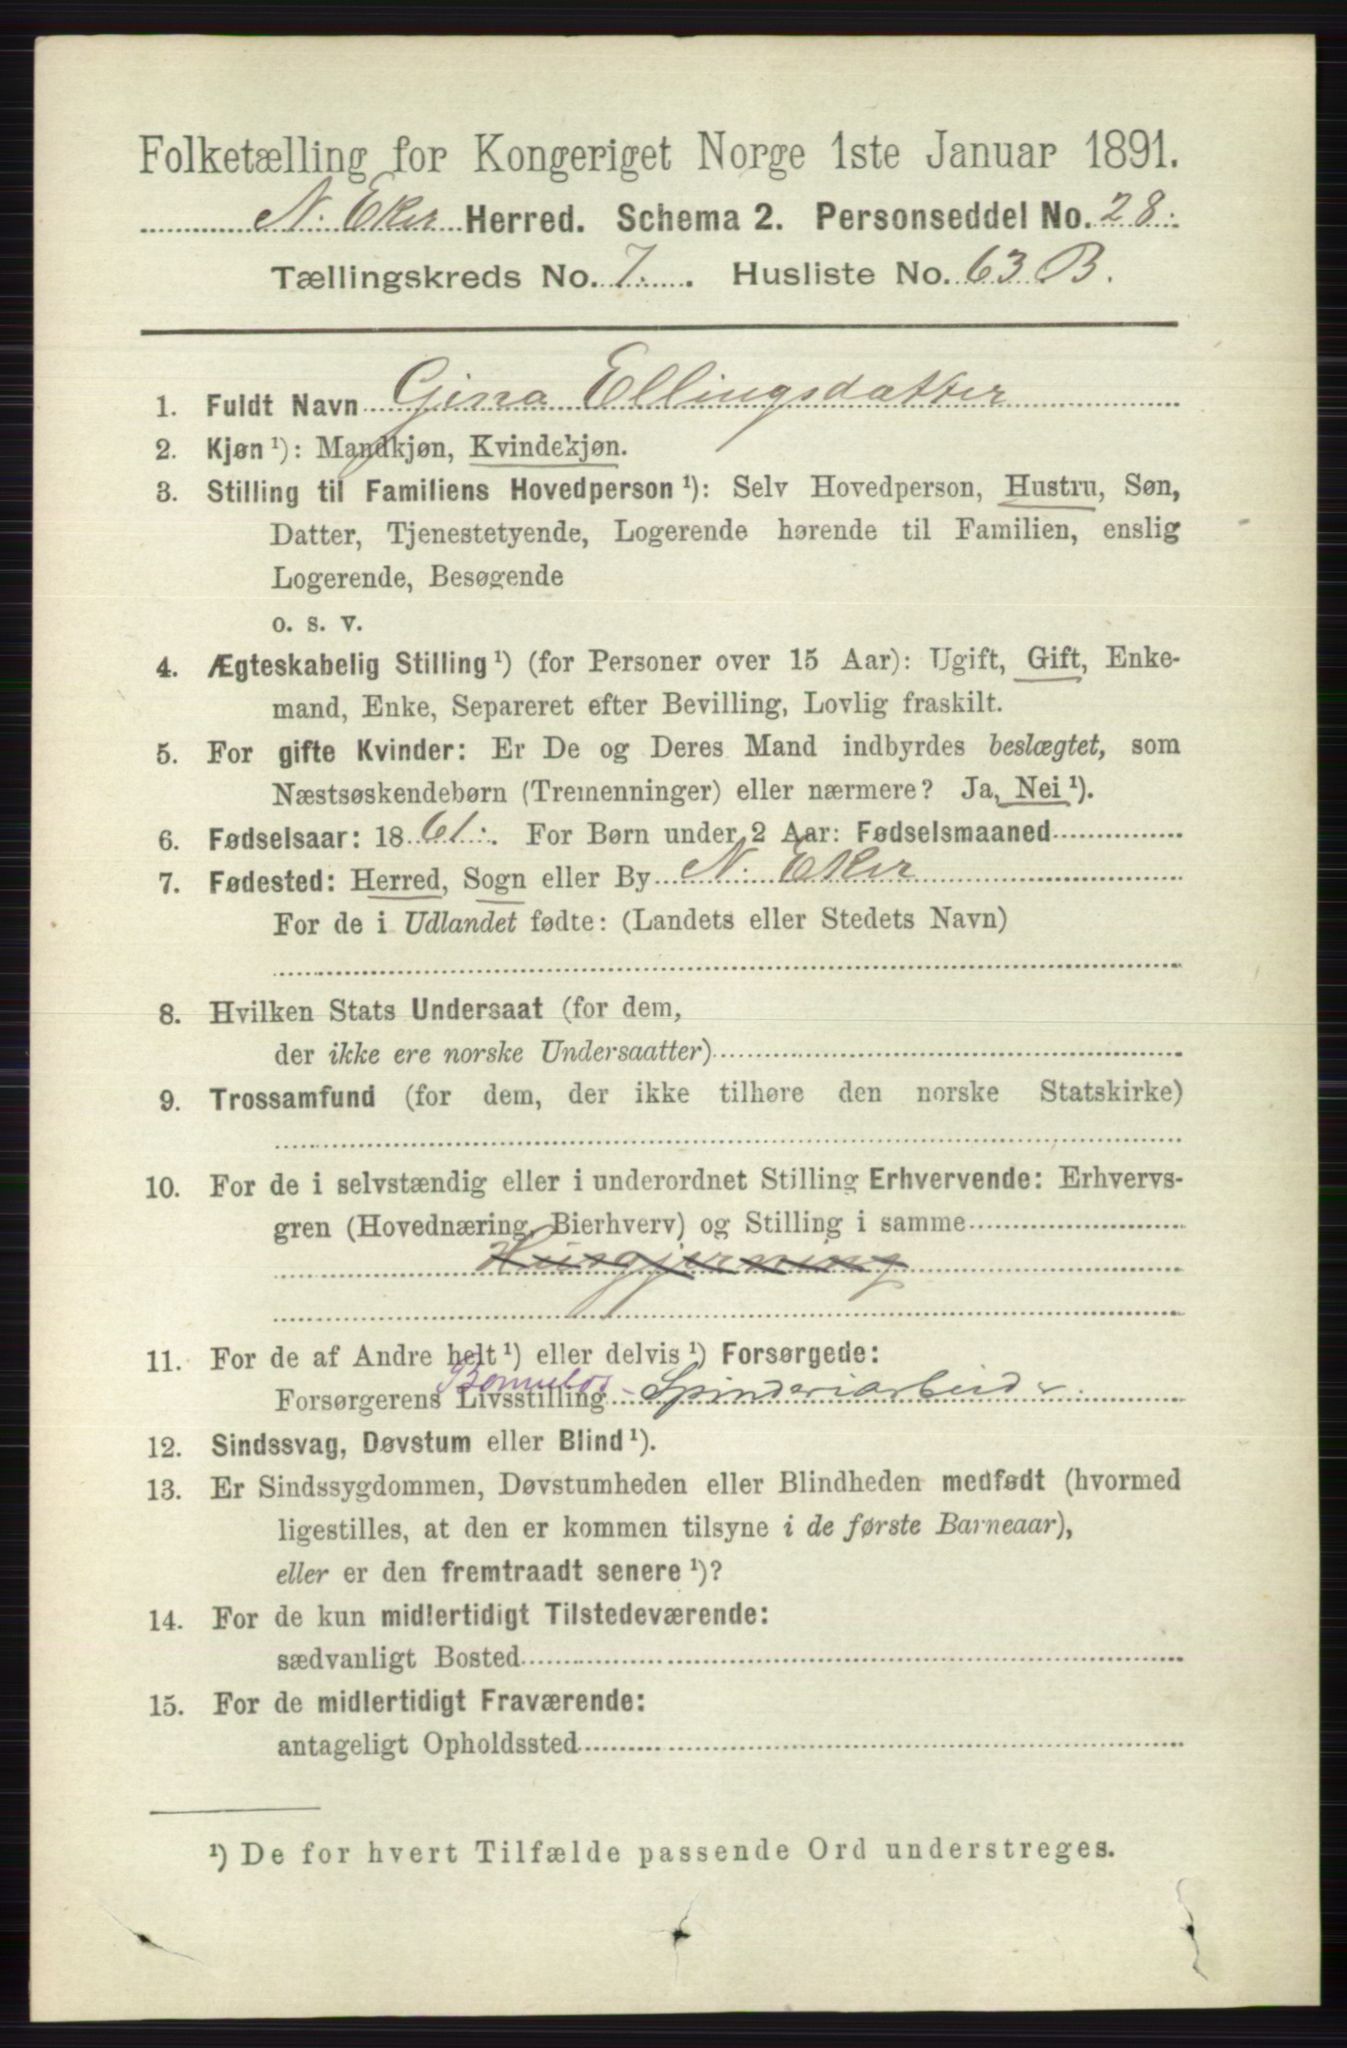 Folketælling for Kongeriget Norge 1ste Januar 1891.
N. Eker Herred. Schema 2. Personseddel No. 28.
Tællingskreds No. 7. Husliste No. 63 B.
1. Fuldt Navn Gina Ellingsdatter
2. Kjøn ¹): Mandkjøn, Kvindekjøn.
3. Stilling til Familiens Hovedperson ¹): Selv Hovedperson, Hustru, Søn,
Datter, Tjenestetyende, Logerende hørende til Familien, enslig
Logerende, Besøgende
o. s. v.
4. Ægteskabelig Stilling ¹) (for Personer over 15 Aar): Ugift, Gift, Enke-
mand, Enke, Separeret efter Bevilling, Lovlig fraskilt.
5. For gifte Kvinder: Er De og Deres Mand indbyrdes beslægtet, som
Næstsøskendebørn (Tremenninger) eller nærmere? Ja, Nei ¹).
6. Fødselsaar: 1861. For Børn under 2 Aar: Fødselsmaaned
7. Fødested: Herred, Sogn eller By N. Eker
For de i Udlandet fødte: (Landets eller Stedets Navn)
8. Hvilken Stats Undersaat (for dem,
der ikke ere norske Undersaatter)
9. Trossamfund (for dem, der ikke tilhøre den norske Statskirke)
10. For de i selvstændig eller i underordnet Stilling Erhvervende: Erhvervs-
gren (Hovednæring, Bierhverv) og Stilling i samme
Husgjerning
11. For de af Andre helt ¹) eller delvis ¹) Forsørgede:
Forsørgerens Livsstilling Bomulds- Spinderiarbeider
12. Sindssvag, Døvstum eller Blind ¹).
13. Er Sindssygdommen, Døvstumheden eller Blindheden medfødt (hvormed
ligestilles, at den er kommen tilsyne i de første Barneaar),
eller er den fremtraadt senere ¹)?
14. For de kun midlertidigt Tilstedeværende:
sædvanligt Bosted
15. For de midlertidigt Fraværende:
antageligt Opholdssted
¹) De for hvert Tilfælde passende Ord understreges.